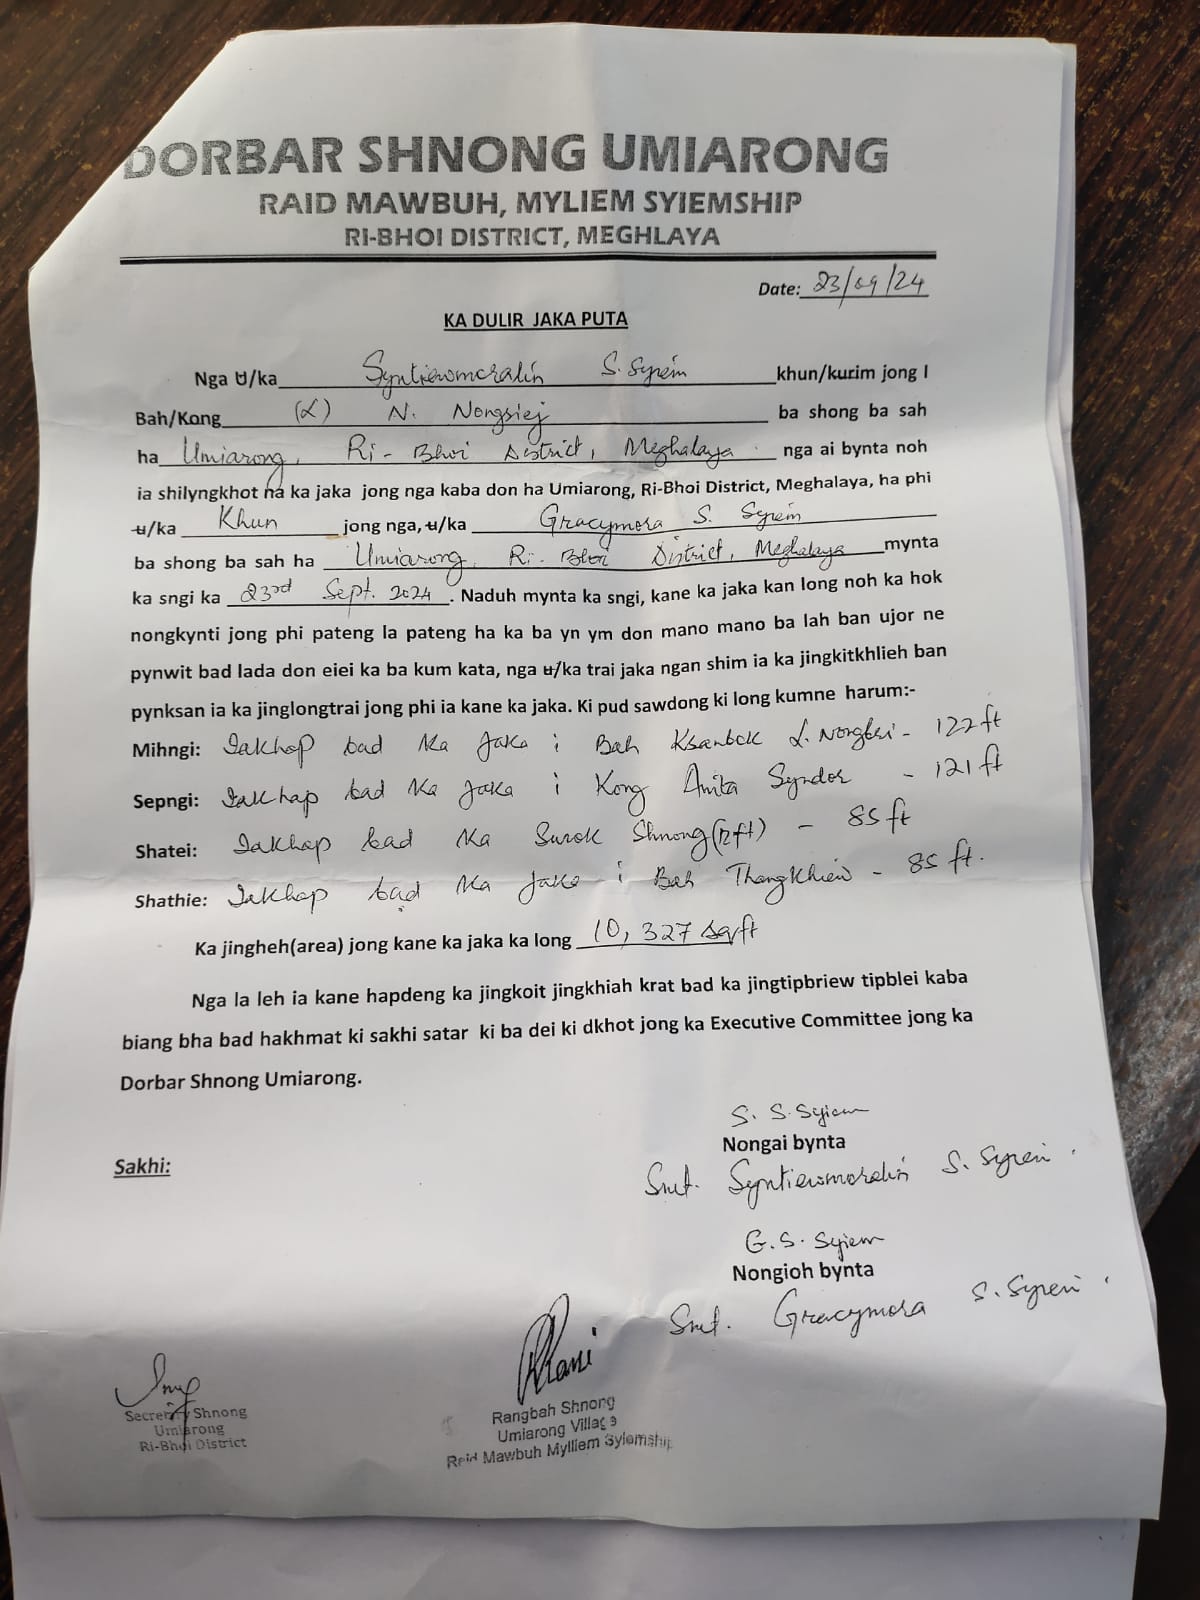 DORBAR SHNONG UMIARONG
RAID MAWBUH, MYLIEM SYIEMSHIP
RI-BHOI DISTRICT, MEGHLAYA
Date: 23/09/24
KA DULIR JAKA PUTA
Nga U/ka Syntiewmoralin S. Syiem khun/kurim jong I
Bah/Kong (L) N. Nongsiej ba shong ba sah
ha Umiarong, Ri-Bhoi District, Meghalaya nga ai bynta noh
ia shilyngkhot na ka jaka jong nga kaba don ha Umiarong, Ri-Bhoi District, Meghalaya, ha phi
u/ka Khun jong nga, u/ka Gracymora S. Syiem
ba shong ba sah ha Umiarong, Ri-Bhoi District, Meghalaya mynta
ka sngi ka 23rd Sept. 2024. Naduh mynta ka sngi, kane ka jaka kan long noh ka hok
nongkynti jong phi pateng la pateng ha ka ba yn ym don mano mano ba lah ban ujor ne
pynwit bad lada don eiei ka ba kum kata, nga u/ka trai jaka ngan shim ia ka jingkitkhlieh ban
pynksan ia ka jinglongtrai jong phi ia kane ka jaka. Ki pud sawdong ki long kumne harum:-
Mihngi: Iakhap bad ka jaka i Bah L. - 122 ft
Sepngi: Iakhap bad ka jaka i Kong Anita Syndor - 121 ft
Shatei: Iakhap bad ka Surok Shnong (12ft) - 85 ft
Shathie: Iakhap bad ka jaka i Bah Thangkhiew - 85 ft.
Ka jingheh(area) jong kane ka jaka ka long 10,327 sqft
Nga la leh ia kane hapdeng ka jingkoit jingkhiah krat bad ka jingtipbriew tipblei kaba
biang bha bad hakhmat ki sakhi satar ki ba dei ki dkhot jong ka Executive Committee jong ka
Dorbar Shnong Umiarong.
S. S. Syiem
Nongai bynta
Sakhi:
Smt. Syntiewmoralin S. Syiem.
G. S. Syiem
Nongioh bynta
Smt. Gracymora S. Syiem.
Secretary Shnong
Umiarong
Ri-Bhoi District
Rangbah Shnong
Umiarong Village
Raid Mawbuh Mylliem Syiemship